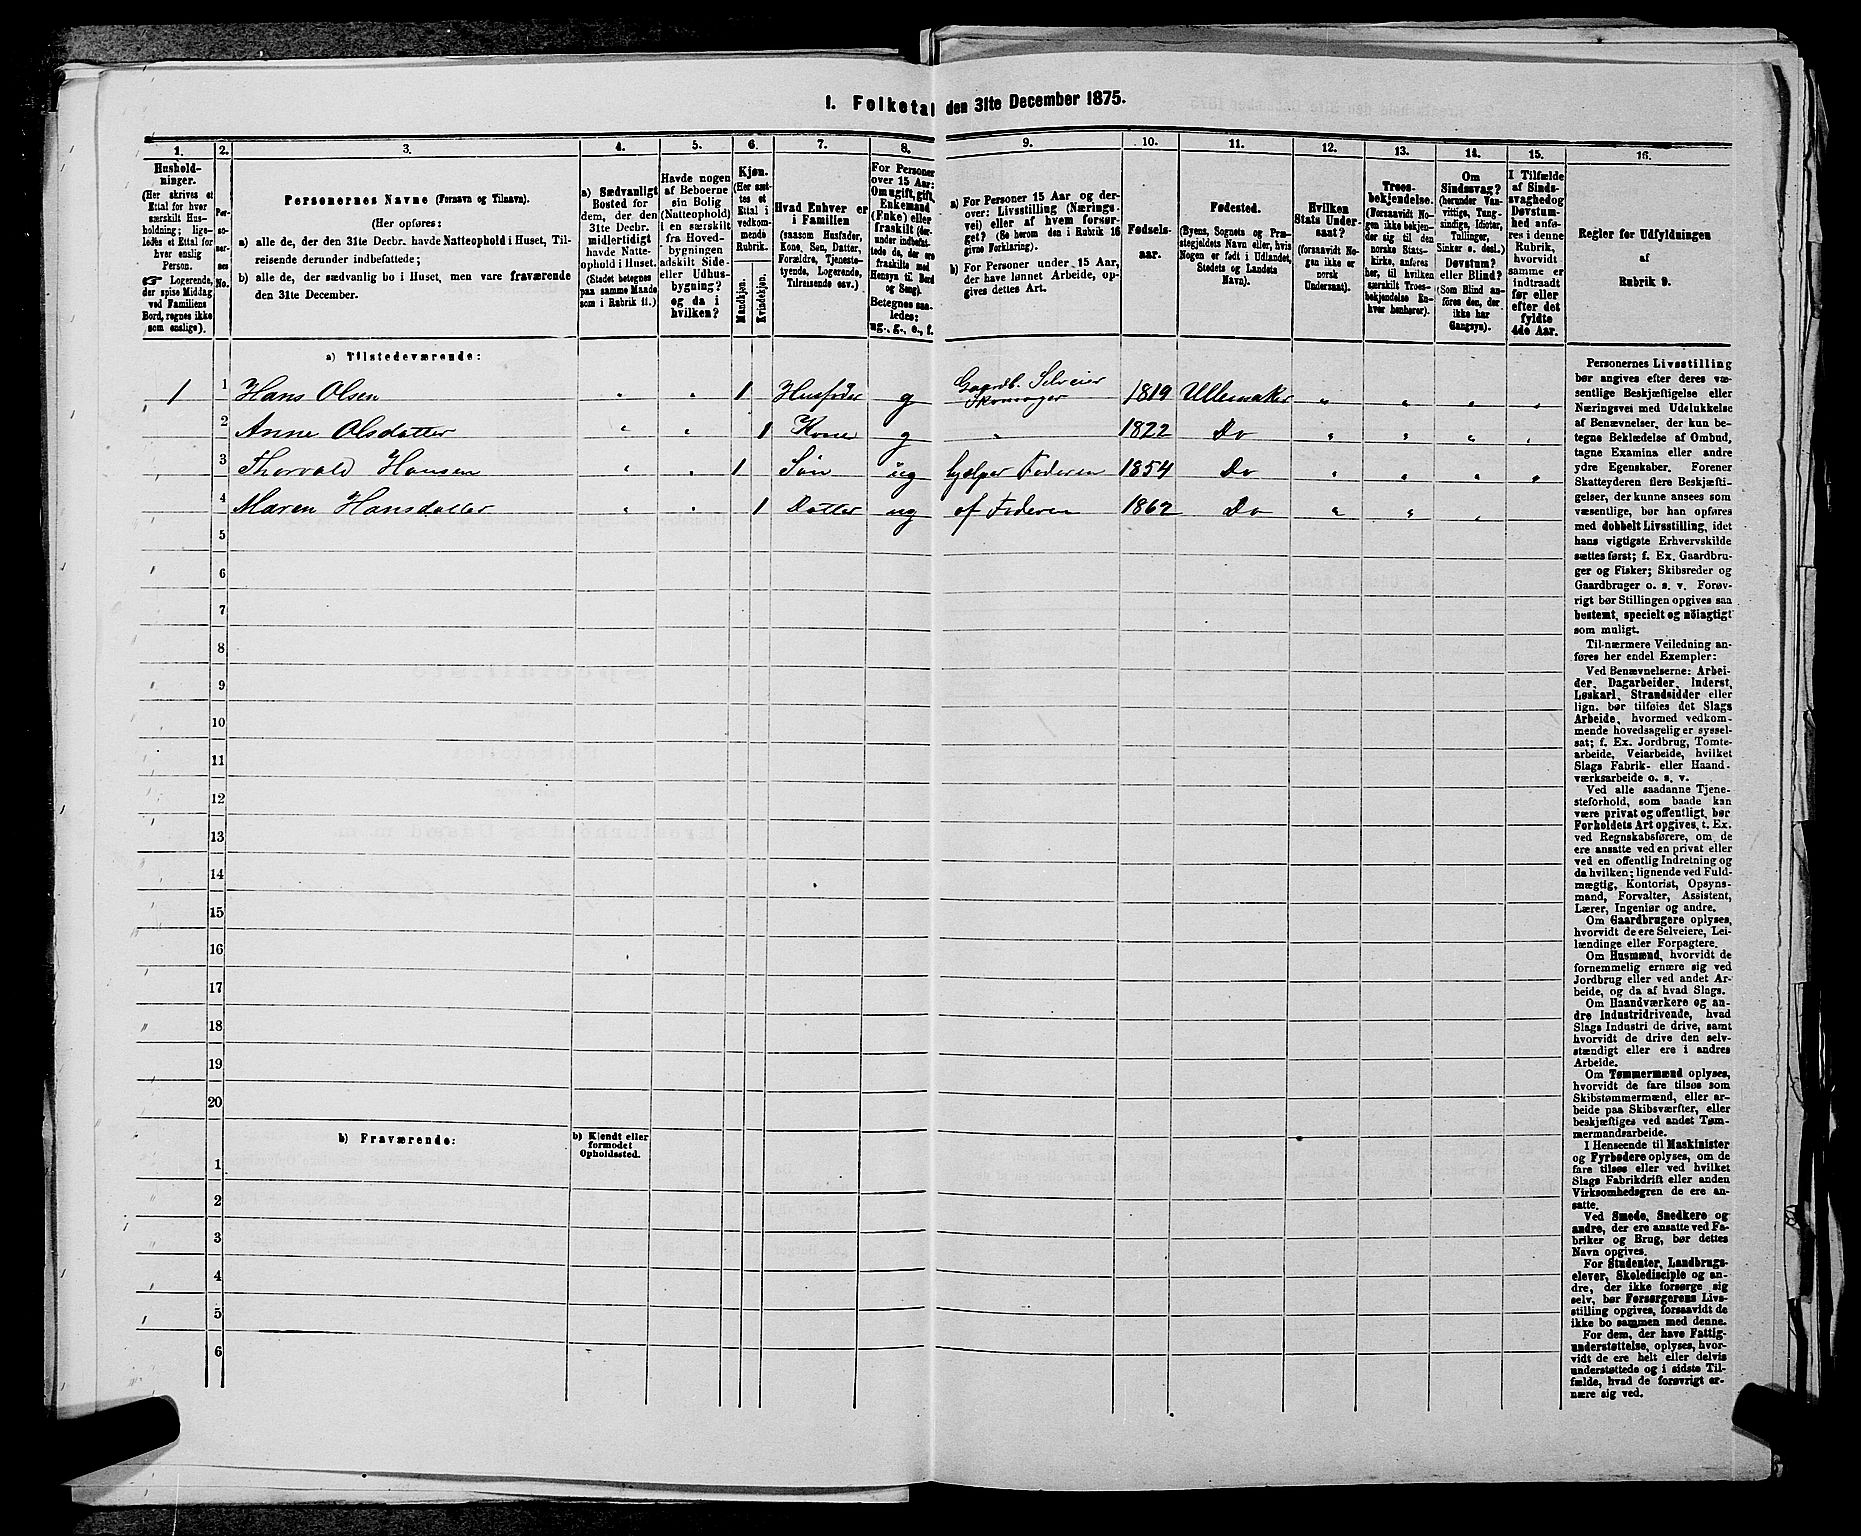 1. Folketal den 31te December 1875.
1.
2.
3.
4.
5.
6.
7.
8.
9.
10.
11.
12.
13.
14.
15.
16.
Hushold-
ninger.
(Her skrives et
Ettal for hver
særskilt Hus-
holdning; lige-
ledes et Ettal for
hver enslig
Person.
☞ Logerende,
der spise Middag
ved Familiens
Bord, regnes ikke
som enslige).
Per-
so-
ner-
nes
No.
Personernes Navne (Fornavn og Tilnavn).
(Her opføres:
a) alle de, der den 31te Decbr. havde Natteophold i Huset, Til-
reisende derunder indbefattede;
b) alle de, der sædvanlig bo i Huset, men vare fraværende
den 31te December.
a) Sædvanligt
Bosted for
dem, der den
31te Decbr.
midlertidigt
havde Natte-
ophold i Huset.
(Stedet betegnes
paa samme Maade
som i Rubrik 11.)
Havde nogen
af Beboerne
sin Bolig
(Natteophold)
i en særskilt
fra Hoved-
bygningen
adskilt Side-
eller Udhus-
bygning?
og da i
hvilken?
Kjøn.
(Her sæt-
tes et
Ettal i
vedkom-
mende
Rubrik.
Mandkjøn.
Kvindekjøn.
Hvad Enhver er
i Familien
(saasom Husfader,
Kone, Søn, Datter,
Forældre, Tjeneste-
tyende, Logerende,
Tilreisende osv.).
For Personer
over 15 Aar:
Om ugift, gift,
Enkemand
(Enke) eller
fraskilt (der-
under indbefat-
tede de, der ere
fraskilte med
Hensyn til Bord
og Seng).
Betegnes saa-
ledes:
ug., g., e., f.
a) For Personer 15 Aar og der-
over: Livsstilling (Nærings-
vei) eller af hvem forsør-
get? (Se herom den i Rubrik 16
givne Forklaring).
b) For Personer under 15 Aar,
der have lønnet Arbeide, op-
gives dettes Art.
Fødsels-
aar.
Fødested.
(Byens, Sognets og Præ-
stegjeldets Navn eller, hvis
Nogen er født i Udlandet,
Stedets og Landets
Navn).
Hvilken
Stats Under-
saat?
(forsaavidt No-
gen ikke er
norsk
Undersaat).
Troes-
bekjendelse.
(Forsaavidt No-
gen ikke bekjen-
der sig til den
norske Stats-
kirke, anføres
her, til hvilken
særskilt Troes-
bekjendelse En-
hver henhører).
Om
Sindssvag?
(herunder Van-
vittige, Tung-
sindige, Idioter,
Tullinger,
Sinker o. desl.).
Døvstum?
eller Blind?
(Som Blind an-
føres den, der
ikke har
Gangsyn).
I Tilfælde
af Sinds-
svaghed og
Døvstum-
hed anfø-
res i denne
Rubrik,
hvorvidt
samme er
indtraadt
før eller
efter det
fyldte
4de Aar.
Regler for Udfyldningen
af
Rubrik 9.
a) Tilstedeværende:
1 1 Hans Olsen " " 1 Husfader g Gaardb. Selveier
Skomager 1819 Ullensaker " " " "
2 Anne Olsdatter " " 1 Kone g " 1822 Do " " " "
3 Thorvald Hansen " " 1 Søn ug hjælper Faderen 1854 Do " " " "
4 Maren Hansdatter " " 1 Datter ug af Faderen 1862 Do " " "
5
6
7
8
9
10
11
12
13
14
15
16
17
18
19
20
b) Fraværende:
b) Kjendt eller
formodet
Opholdssted.
1
2
3
4
5
6
Personernes Livsstilling
bør angives efter deres væ-
sentlige Beskjæftigelse eller
Næringsvei med Udelukkelse
af Benævnelser, der kun be-
tegne Beklædelse af Ombud,
tagne Examina eller andre
ydre Egenskaber. Forener
Skatteyderen flere Beskjæfti-
gelser, der kunne ansees som
væsentlige, bør han opføres
med dobbelt Livsstilling, idet
hans vigtigste Erhvervskilde
sættes først; f. Ex. Gaardbru-
ger og Fisker; Skibsreder og
Gaardbruger o. s. v. Forøv-
rigt bør Stillingen opgives saa
bestemt, specielt og nöiagtigt
som muligt.
Til nærmere Veiledning an-
føres her endel Exempler:
Ved Benævnelserne: Arbei-
der, Dagarbeider, Inderst,
Løskarl, Strandsidder eller
lign. bør tilføies det Slags
Arbeide, hvormed vedkom-
mende hovedsagelig er syssel-
sat; f. Ex. Jordbrug, Tomte-
arbeide, Veiarbeide, hvilket
Slags Fabrik- eller Haand-
værksarbeide o. s. v.
Ved alle saadanne Tjene-
steforhold, som baade kan
være privat og offentligt, bør
Forholdets Art opgives, t. Ex.
ved Regnskabsførere, om de
ere ansatte ved en privat eller
ved en offentlig Indretning og
da hvilken; lignende ved Fuld-
mægtig, Kontorist, Opsyns-
mand, Forvalter, Assistent,
Lærer, Ingeniør og andre.
Om Gaardbrugere oplyses,
hvorvidt de ere Selveiere, Lei-
lændinge eller Forpagtere.
Om Husmænd, hvorvidt de
fornemmelig ernære sig ved
Jordbrug eller ved andet Ar-
beide, og da af hvad Slags.
Om Haandværkere og an-
dre Industridrivende, hvad
Slags Industri de drive, samt
hvorvidt de drive den selv-
stændigt eller ere i andres
Arbeide.
Om Tømmermænd oplyses,
hvorvidt de fare tilsøs som
Skibstømmermænd, eller ar-
beide paa Skibsværfter, eller
beskjæftiges ved andet Tøm-
mermandsarbeide.
I Henseende til Maskinister
og Fyrbødere oplyses, om de
fare tilsøs eller ved hvilket
Slags Fabrikdrift eller anden
Virksomhedsgren de ere an-
satte.
Ved Smede, Snedkere og
andre, der ere ansatte ved Fa-
briker og Brug, bør dettes
Navn opgives.
For Studenter, Landbrugs-
elever, Skoledisciple og an-
dre, der ikke forsørge sig
selv, bør Forsørgerens Livs-
stilling opgives, forsaavidt de
ikke bo sammen med denne.
For dem, der have Fattig-
understøttelse, oplyses, hvor-
vidt de ere helt eller delvis
understøttede og i sidste Til-
fælde, hvad de forøvrigt er-
nære sig ved.